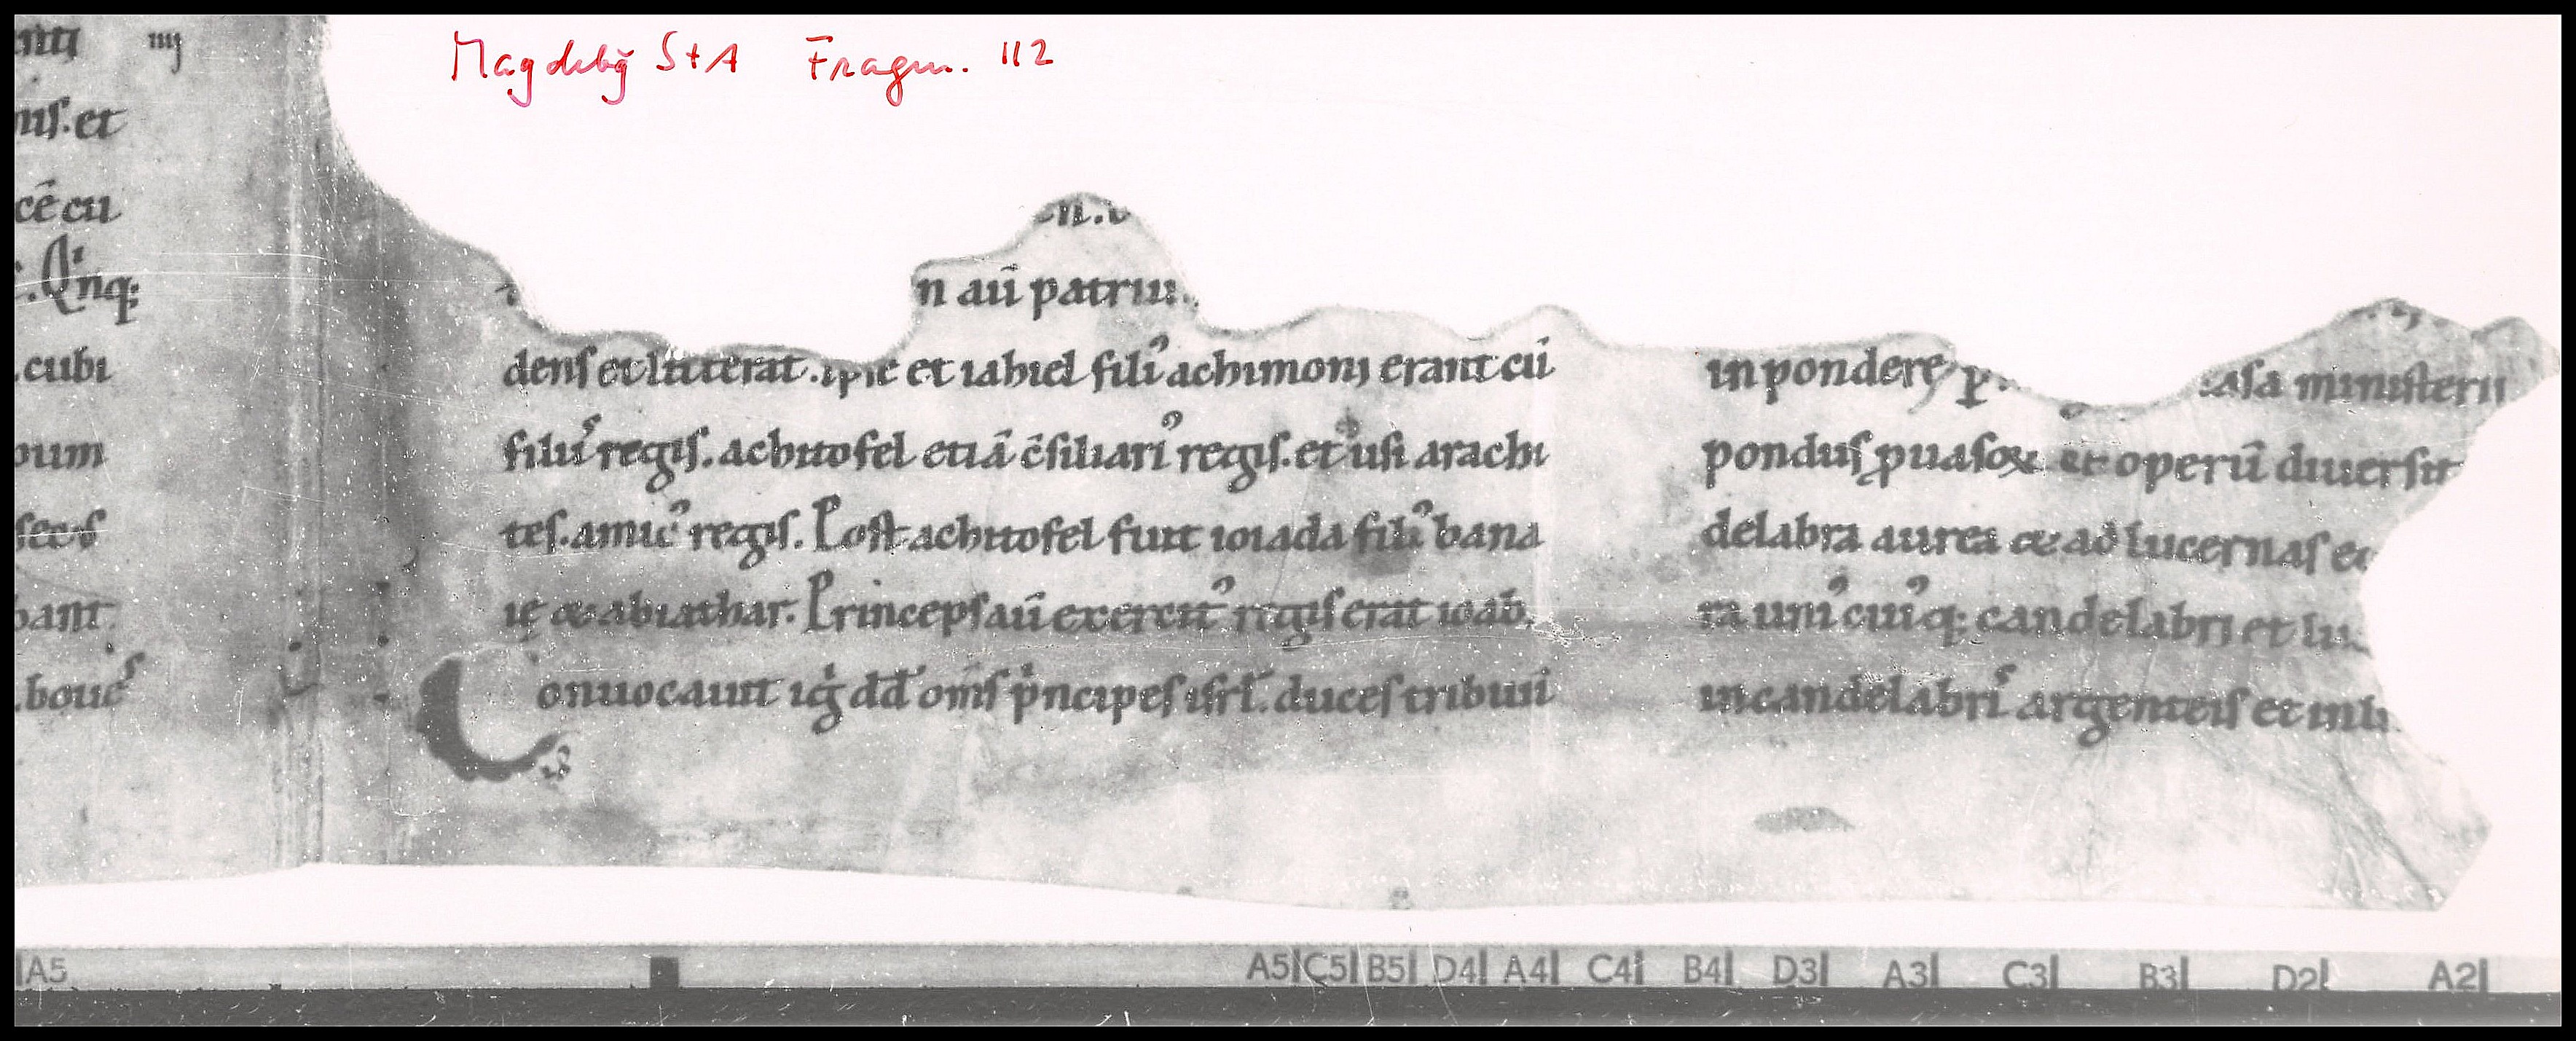 Magdebg StA Fragm. 112
iiij
nis. et
cē cu
. Qͥnq;
.cubi
bant.
.bouēs
n aū patruu.
dens et litterat. ipse et iahiel filiꝰ achimoni erant cū
filiis regis. achitofel etiā ↄ̄siliariꝰ regis. et husi arachi
tes. amicꝰ regis. Post achitofel fuit ioiada filiꝰ bana
ię & abiathar. Princeps aū exercitꝰ regis erat ioab.
Conuocauit igͥ dd̄ om̄s pͥncipes isrl̄. duces tribuū
in pondere p uasa ministerii
pondus ꝓ uasoꝝ et operū diuersit
delabra aurea & ad lucernas e
ra uniꝰcuiꝰq; candelabri et lu
in candelabrꝭ argenteis et in l
A5 A5 C5 B5 D4 A4 C4 B4 D3 A3 C3 B3 D2 A2